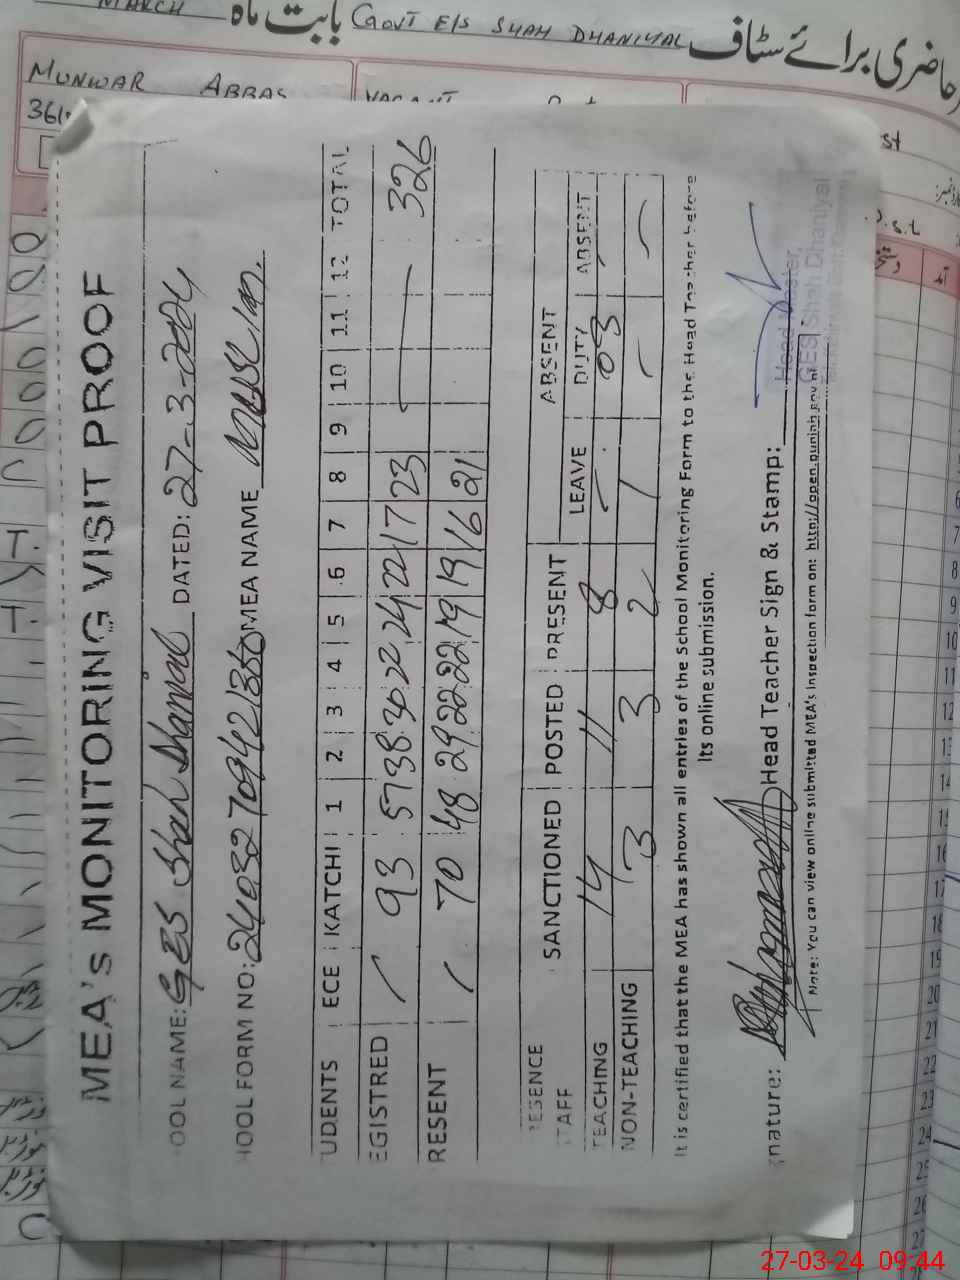 MARCH بابت ماہ GOVT E/S SHAH DHANIYAL حاضری برائے سٹاف
MUNWAR ABBAS
VACANT
MEA's MONITORING VISIT PROOF
OOL NAME: GES Shah Dhaniyal DATED: 27-3-2024
OOL FORM NO: MEA NAME
UDENTS ECE KATCHI 1 2 3 4 5 6 7 8 9 10 11 12 TOTAL
EGISTRED / 93 57 38 30 22 24 22 17 23 — 326
RESENT / 70 48 29 22 22 19 19 16 21
ESENCE ABSENT
TAFF SANCTIONED POSTED PRESENT LEAVE DUTY ABSENT
TEACHING 14 11 8 — 03 —
NON-TEACHING 3 3 2 / — —
It is certified that the MEA has shown all entries of the School Monitoring Form to the Head Teacher before
Its online submission.
nature: Head Teacher Sign & Stamp:
Head Master,
GES Shah Dhaniyal
Note: You can view online submitted MEA's Inspection form on: http://open.punjab.gov
6
7
8
9
10
11
12
13
14
15
16
17
18
19
20
21
22
23
24
25
26
27
27-03-24 09:44